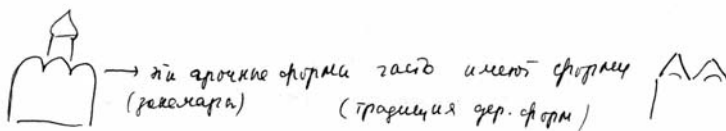 эти арочные формы часто имеют форму
(закомары) (традиция дер. форм)